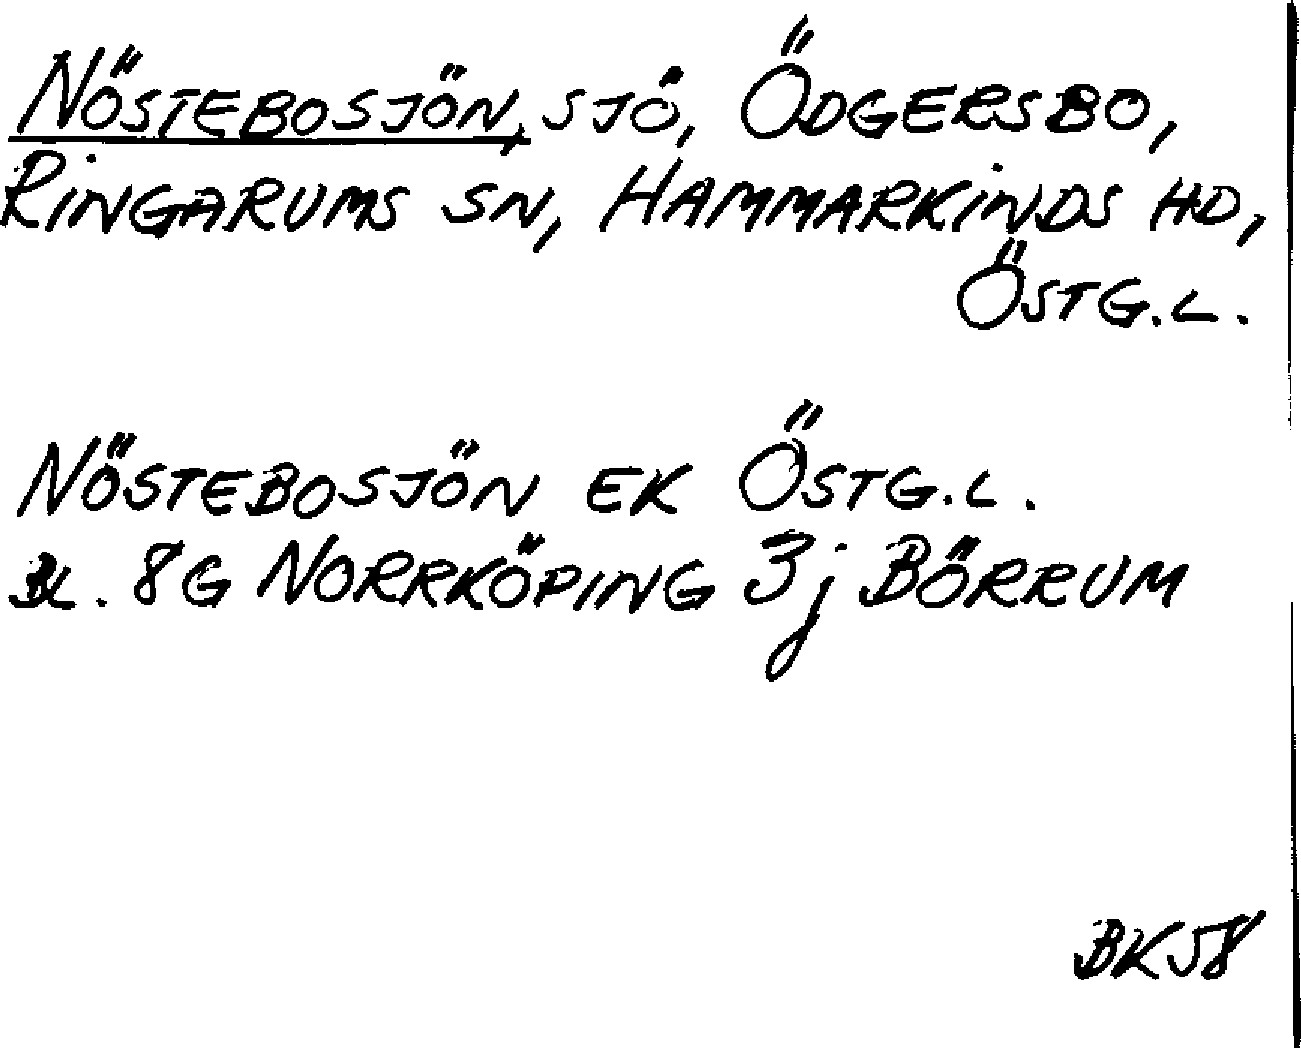 NÖSTEBOSJÖN, SJÖ, ÖDGERSBO,
RINGARUMS SN, HAMMARKINDS HD,
ÖSTG.L.
NÖSTEBOSJÖN EK ÖSTG.L.
BL. 8G NORRKÖPING 3j BÖRRUM
BK58